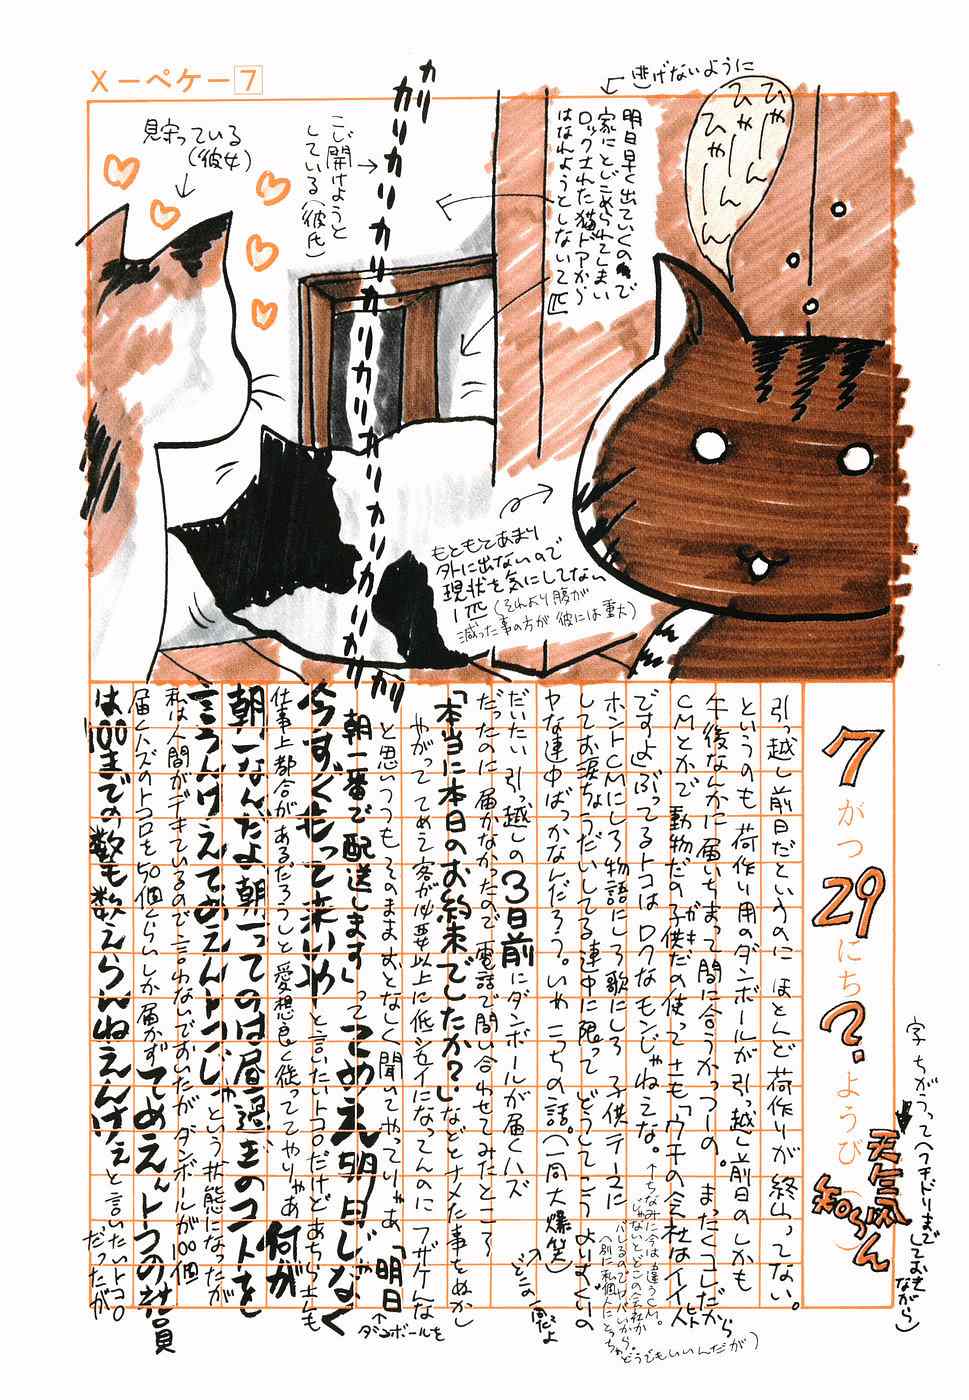 Xーペケー7
逃げないように
明日早く出ていくので
家にとじこめられてしまい
ロックされた猫ドアから
はなれようとしない2匹
ひゃーん
ひゃーん
ひゃーん
カリカリカリカリカリカリカリカリカリカリカリカリ
こじ開けようと
している(彼氏)
見守っている
(彼女)
もともとあまり
外に出ないので
現状を気にしてない
1匹(それより腹が
減った事の方が彼には重大)
7がつ29にち?ようび
天気
知らん
字ちがうって(フチドリまで
しておき
ながら)
引っ越し前日だというのにほとんど荷作りが終わってない。
というのも荷作り用のダンボールが引っ越し前日のしかも
午後なんかに届いちまって間に合うかっつーの。まったくコレだから
CMとかで動物だの子供だの使ってさも「ウチの会社はイイ人
ガキ
ヒト
ですよ」ぶってるトコはロクなモンじゃねェな。
↑ちなみに今は違うCM。
じゃないとどこの会社か
バレるのでヤバいから。
(別に私個人にとっちゃ
どうでもいいんだが)
ホントCMにしろ物語にしろ歌にしろ子供テーマに
してお涙ちょうだいしてる連中に限ってどうしてこうよりによりの
ヤな連中ばっかなんだろう。いやこっちの話。(一同大爆笑)
↑どこの一同だよ
だいたい引っ越しの3日前にダンボールが届くハズ
だったのに届かなかったので電話で問い合わせてみたところ
「本当に本日のお約束でしたか?」などとナメた事をぬかし
やがっててめえ客が必要以上に低シセイになってんのにフザケんな
と思いつつもそのままおとなしく聞いてやってりゃあ「明日
↑ダンボールを
朝一番で配送します」ってってめえ明日じゃなく
今すぐ持って来いやと言いたいトコロだけどあちらさんも
仕事上都合があるだろうしと愛想良く従っててやりゃあ何が
朝一なんだよ朝一ってのは昼過ぎのコトを
言うんけえてめえんトコじゃという状態になったが
私は人間がデキているので言わないでおいたがダンボールが100個
届くハズのトコロを50個くらいしか届かずてめえんトコの社員
は100までの数も数えらんねえんけえと言いたいトコロ
だったが